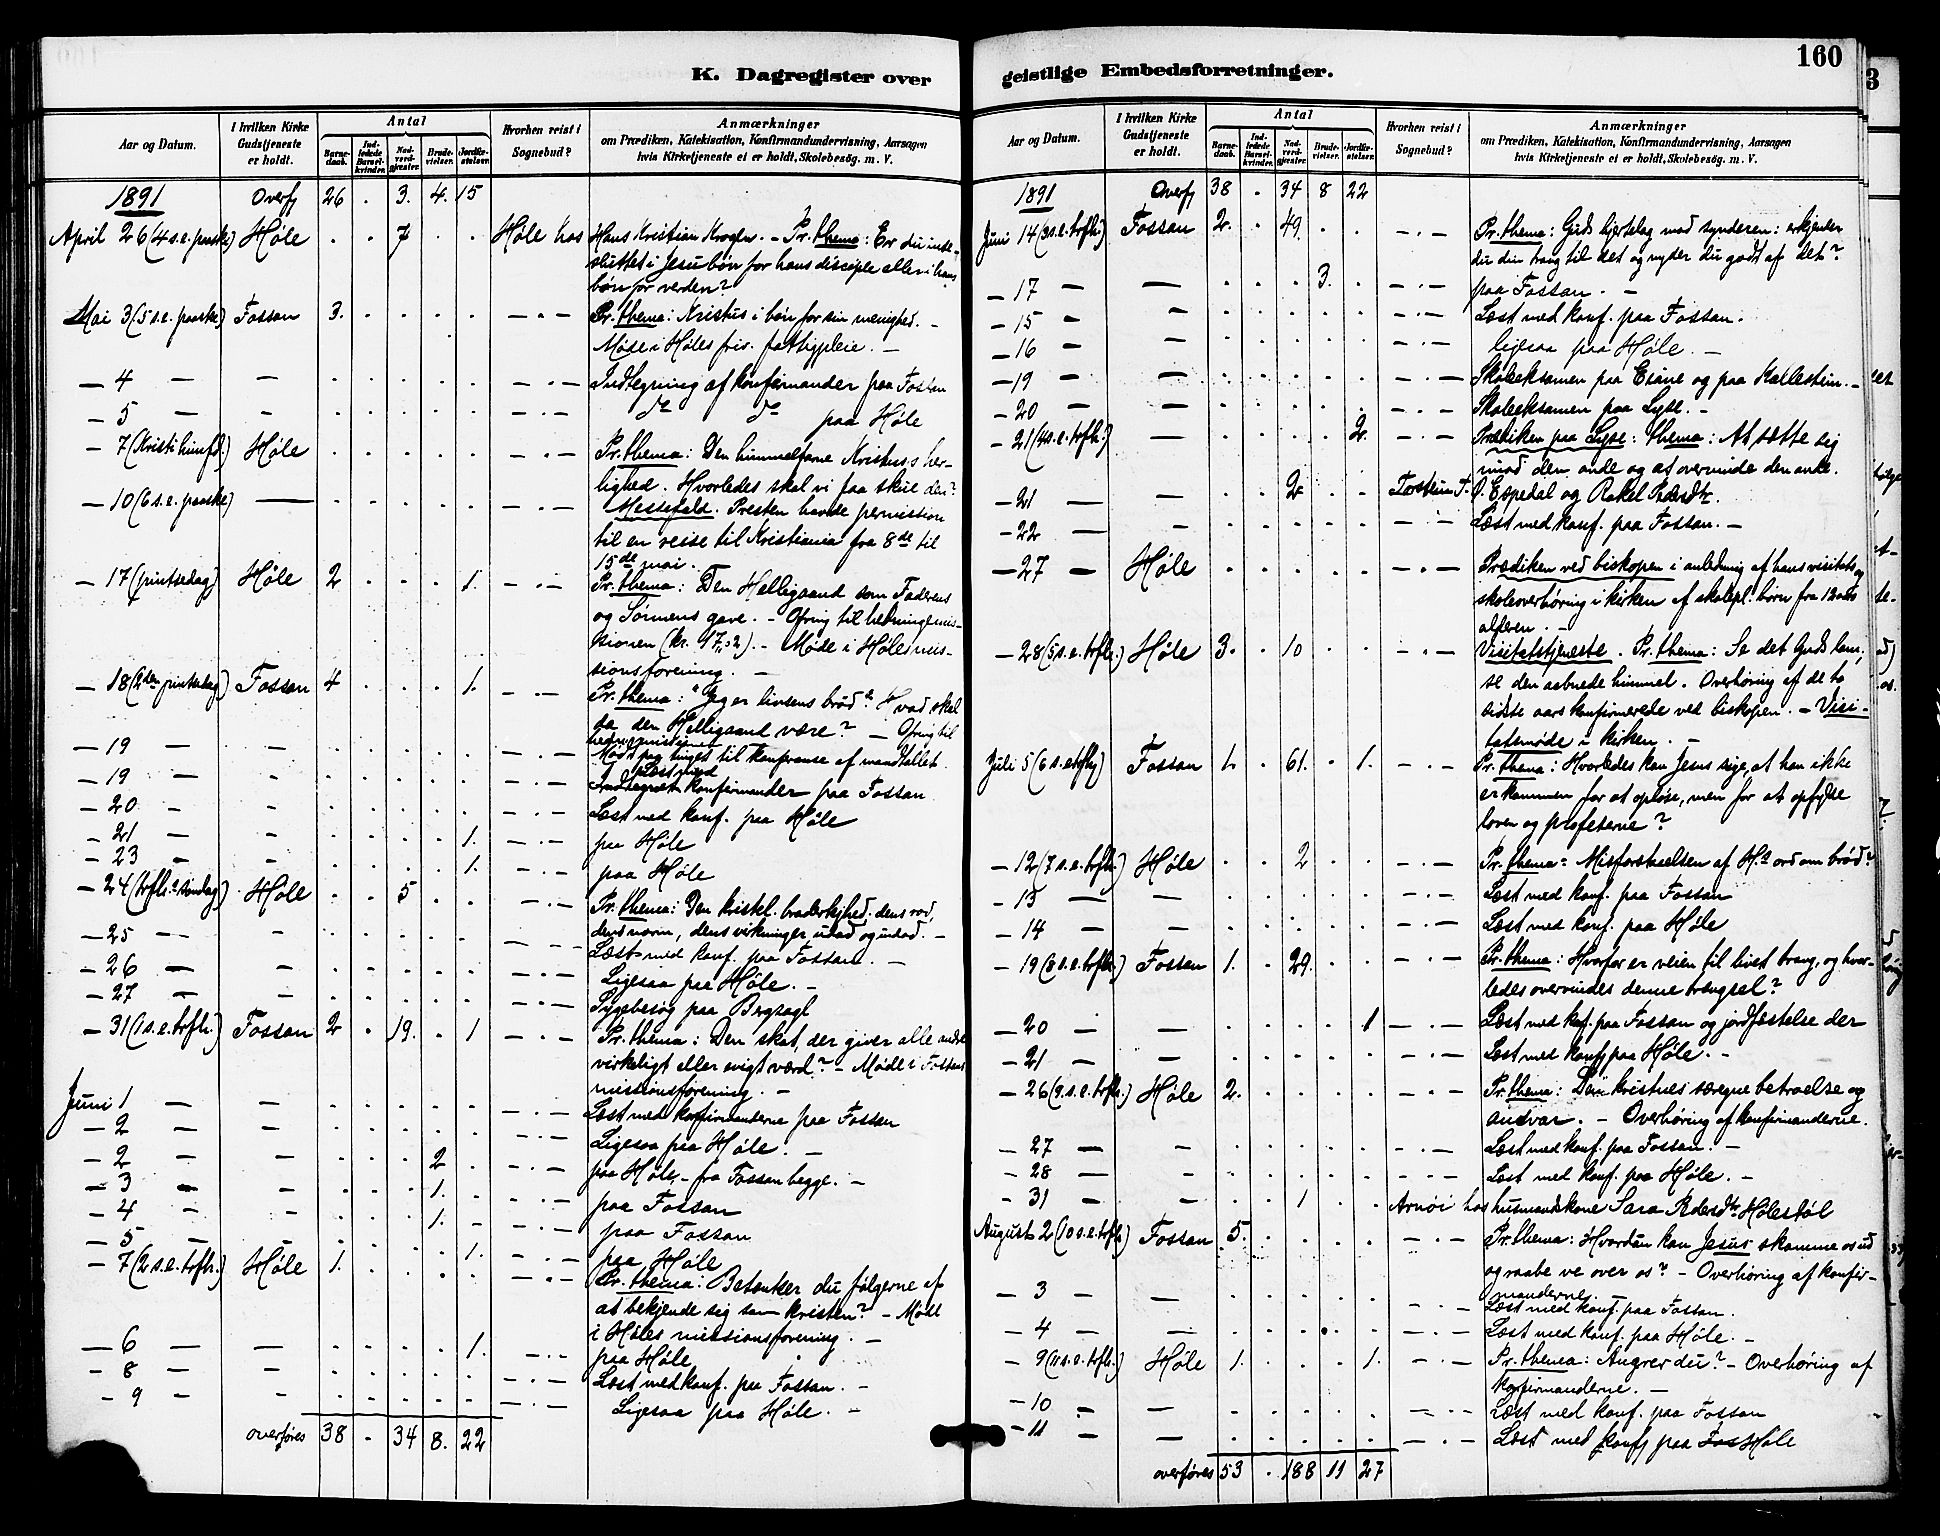 K. Dagregister over
Aar og Datum. I hvilken Kirke Gudstjeneste er holdt. Antal Barnedaab. Indledede Barselkvinder. Nadverdgjester. Brudevielser. Jordfæstelser. Hvorhen reist i Sognebud? Anmærkninger
om Prædiken, Katekisation, Konfirmandundervisning, Aarsagen
hvis Kirketjeneste ei er holdt, Skolebesög. m. V.
1891 Overf 26 . 3. 4. 15
April 26 (4 s.e. paaske) Høle . . 7 . . Høle hos Hans Kristian Krogen. - Pr. thema: Er du inde-
sluttet i Jesu bøn for hans disciple eller i hans
bøn for verden?
Mai 3 (5 s.e. paaske) Fossan 3. . . . . — " — Pr. thema: Kristus i bøn for sin menighed. -
Møde i Høles friv. fattigpleie. —
— 4 — — . . . . . — . — Indtegning af konfirmander paa Fossan
— 5 — . . . . . — . — do do paa Høle
— 7 (Kristi himfd.) Høle . . . . . — " — Pr. thema: Den himmelfarne Kristus's her-
lighed. Hvorledes skal vi faa skue den?
— 10 (6 s.e. paaske) — . . . . . Messefald. Presten havde permission
til en reise til Kristiania fra 8de til
15de mai.
— 17 (pintsedag) Høle 2 . . . 1. — . — Pr. thema: Den Helligaand som Faderens
og Sønnens gave. - Ofring til hedningemis-
sionen (kr. 17,32). - Møde i Høle mis-
sionsforening. —
— 18 (2den pintsedag) Fossan 4 . . . 1. — . — Pr. thema: "Jeg er livsens brød". Hvad skal
da den Helligaand være? — Ofring til
hedningmissionen
— 19 — — . . . . . — . — Møde paa tinget til konferanse af mandtallet.
Læst med
— 19 — — . . . . . — . — Indtegnet konfirmander paa Fossan
— 20 — — . . . . . — . — Læst med konf. paa Høle
— 21 — — . . . . 1. — . — paa Høle
— 23 — — . . . . 1. — . — paa Høle
— 24 (trefh.s söndag) Høle . . 5 . . — . — Pr. thema: Den kristel. broderkjhed. dens rod,
dens norm, dens virkninger udad og indad. —
— 25 — — . . . . . — . — Læst med konf. paa Fossan. —
— 26 — — . . . . . — . — Ligesaa paa Høle. —
— 27 — — . . . . . — . — Sygebesøg paa Bergsagl
— 31 (1 s.e. trefh.) Fossan 2 . 19. . 1 — . — Pr. thema: Den skat, der giver alle andre
virkeligt eller evigt værd? - Møde i Fossan
missionsforening. —
Juni 1 — — . . . . . — . — Læst med konfirmanderne paa Fossan
— 2 — — . . . . . — . — Ligesaa paa Høle. —
— 2 — — . . . 2 . — . — paa Høle, - fra Fossan begge. —
— 3 — — . . . 1. . — . — paa Fossan
— 4 — — . . . 1. . — . — paa Fossan
— 5 — — . . . . 1. — . — paa Høle
— 7 (2 s.e. trefh.) Høle 1. . . . . — . — Pr. thema: Betænker du følgerne af
at bekjende sig som kristen? — Møde
i Høles missionsforening. —
— 6 — — . . . . 1. — . — paa Høle
— 8 — — . . . . . — . — Læst med konf. paa Fossan. —
— 9 — — . . . . . — . — Ligesaa paa Høle. —
overføres 38 . 34 8. 22
geistlige Embedsforretninger.
160
Aar og Datum. I hvilken Kirke Gudstjeneste er holdt. Antal Barnedaab. Indledede Barselkvinder. Nadverdgjester. Brudevielser. Jordfæstelser. Hvorhen reist i Sognebud? Anmærkninger
om Prædiken, Katekisation, Konfirmandundervisning, Aarsagen
hvis Kirketjeneste ei er holdt, Skolebesög. m. V.
1891 Overf 38 . 34 8 22
Juni 14 (3 s.e. trefh.) Fossan 2. . 49. . . — . — Pr. thema: Guds hjertelag mod synderen: erkjender
du din trang til det og nyder du godt af det?
— 17 — — . . . 3. . — . — paa Fossan. —
— 15 — — . . . . . — . — Læst med konf. paa Fossan.
— 16 — — . . . . . — . — ligesaa paa Høle. —
— 19 — — . . . . . — . — Skoleeksamen paa Eiane og paa Kallestein. —
— 20 — — . . . . . — . — Skoleeksamen paa Lyse. —
— 21 (4 s.e. trefh.) — . . . . 2. — . — Prædiken paa Lyse: thema: At sætte sig
imod den onde og at overvinde den onde.
— 21 — — . . 2. . . O. Espedal og Rakel Pedersdtr.
— 22 — — . . . . . — . — Læst med konf. paa Fossan. —
— 27 — Høle . . . . . Prædiken ved biskopen i anledning af hans visitats og
skoleoverhøring i kirken af skolepl. børn fra 12 aars
alderen. —
— 28 (5 s.e. trefh.) Høle 3. . 10 . . — . — Visitatstjeneste. Pr. thema: Se det Guds lam,
se den aabnede himmel. Overhøring af de to
sidste aars konfirmerede ved biskopen. — Visi-
tatsmøde i kirken. —
Juli 5 (6 s.e. trefh) Fossan 1. . 61. . 1. — . — Pr. thema: Hvorledes kan Jesus sige, at han ikke
er kommen for at opløse, men for at opfylde
loven og profeterne?
— 12 (7 s.e. trefh.) Høle . . 2 . . — . — Pr. thema: Misforstaaelsen af Hs ord om brød?
— 13 — — . . . . . — . — Læst med konf. paa Fossan
— 14 — — . . . . . — . — Læst med konf. paa Høle
— 19 (8 s.e. trefh.) Fossan 1. . 29. . . — . — Pr. thema: Hvorfor er veien til livet trang, og hvor-
ledes overvindes denne trængsel?
— 20 — — . . . . 1 — . — Læst med konf. paa Fossan og jordfæstelse der
— 21 — — . . . . . — . — Læst med konf paa Høle. —
— 26 (9 s.e. trefh.) Høle 2. . . . . — . — Pr. thema: Den kristnes særegne betroelse og
ansvar. — Overhøring af konfirmanderne.
— 27 — — . . . . . — . — Læst med konf. paa Fossan. —
— 28 — — . . . . . — . — Læst med konf. paa Høle. —
— 31 — — . . 1 . . Arnøi hos husmandskone Sara Pedersdtr Hølestøl
August 2 (10 s.e. trefh) Fossan 5. . . . . Pr. thema: Hvordan kan Jesus skamme os ud
og raabe ve over os? — Overhøring af konfir-
manderne.
— 3 — — . . . . . — . — Læst med konf. paa Fossan.
— 4 — — . . . . . — . — Læst med konf. paa Høle. —
— 9 (11 s.e. trefh.) Høle 1. . . . 1. — . — Pr. thema: Angrer du? — Overhøring af
konfirmanderne. —
— 10 — — . . . . . — . — Læst med konf. paa Fossan
— 11 — — . . . . . — . — Læst med konf paa Høle
overføres 53 . 188 11 27